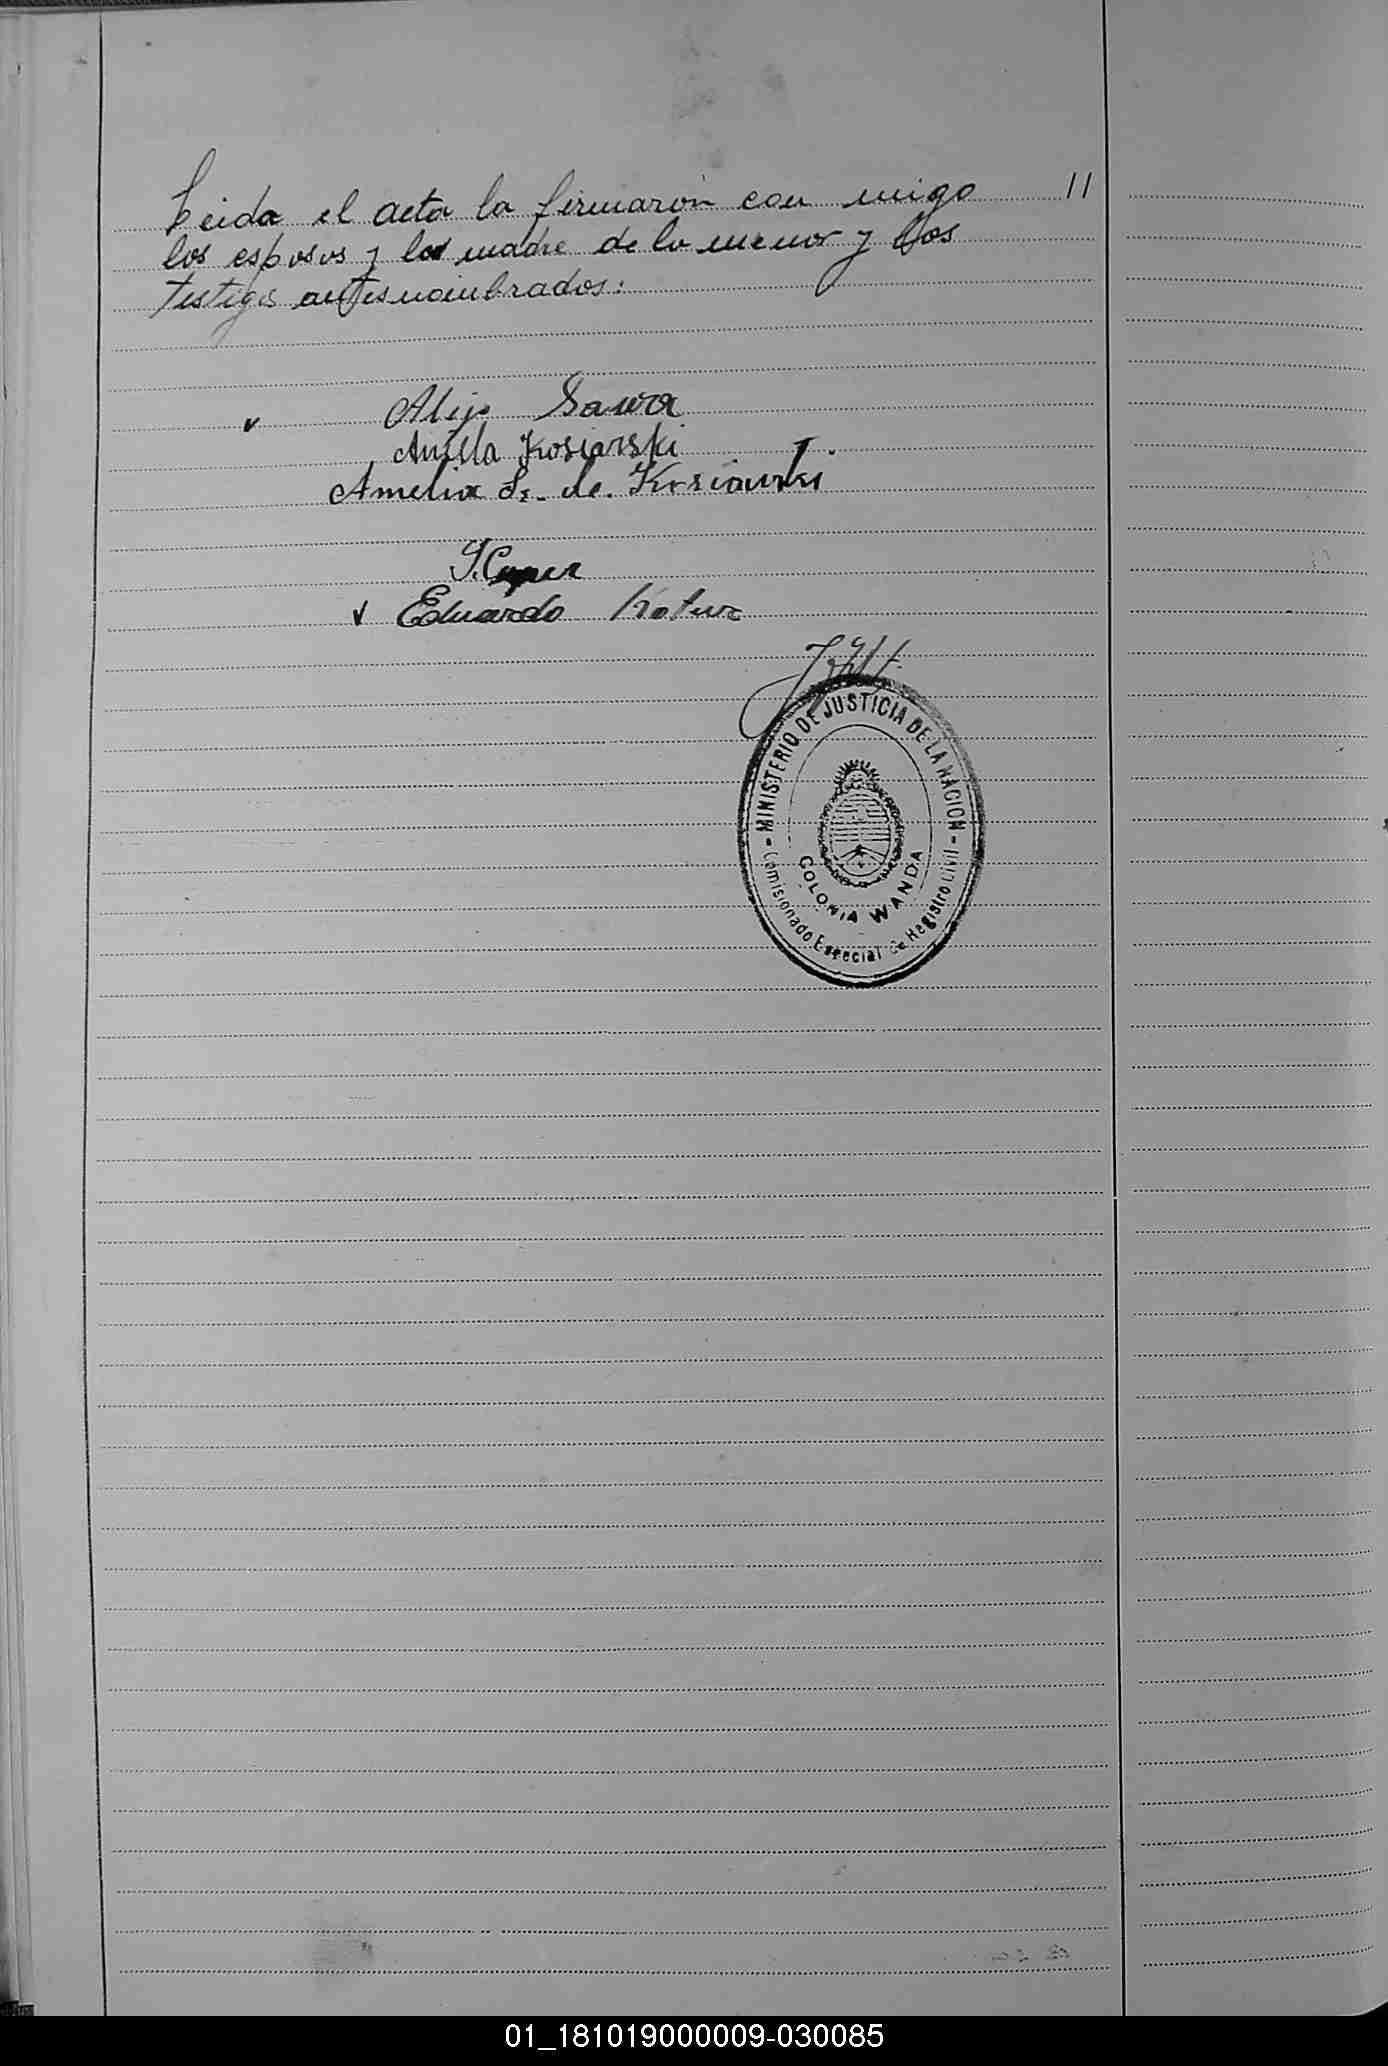 Leida el acta la firmaron con migo 11
los esposos y la madre de la menor y dos
testigos antesnombrados:
Alejo Sawa
Aniela Kosiarski
Amelia S. de Kosiarski
Eduardo
MINISTERIO DE JUSTICIA DE LA NACION
COLONIA WANDA
Comisionado Especial de Registro Civil
01_181019000009-030085